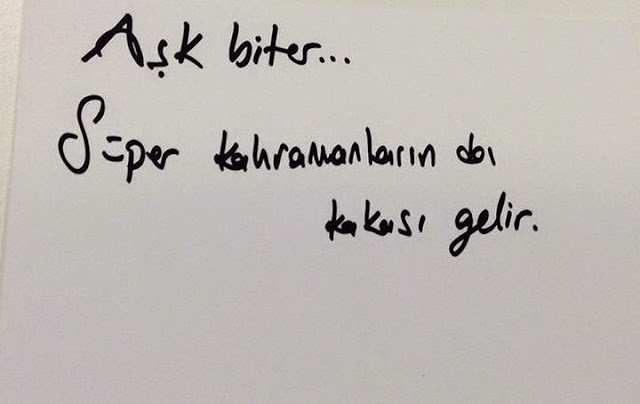 Aşk biter...
Süper kahramanların da
kakası gelir.